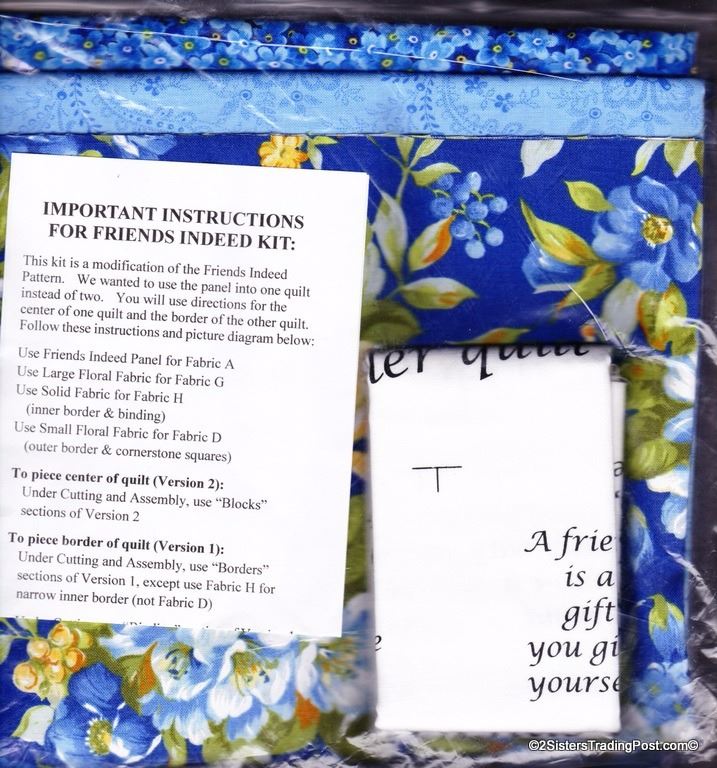 IMPORTANT INSTRUCTIONS
FOR FRIENDS INDEED KIT:
This kit is a modification of the Friends Indeed
Pattern. We wanted to use the panel into one quilt
instead of two. You will use directions for the
center of one quilt and the border of the other quilt.
Follow these instructions and picture diagram below:
Use Friends Indeed Panel for Fabric A
Use Large Floral Fabric for Fabric G
Use Solid Fabric for Fabric H
(inner border & binding)
Use Small Floral Fabric for Fabric D
(outer border & cornerstone squares)
To piece center of quilt (Version 2):
Under Cutting and Assembly, use “Blocks”
sections of Version 2
To piece border of quilt (Version 1):
Under Cutting and Assembly, use “Borders”
sections of Version 1, except use Fabric H for
narrow inner border (not Fabric D)
ler quilt
A frie
is a
gift
you gi
yourse
e
©2SistersTradingPost.com©